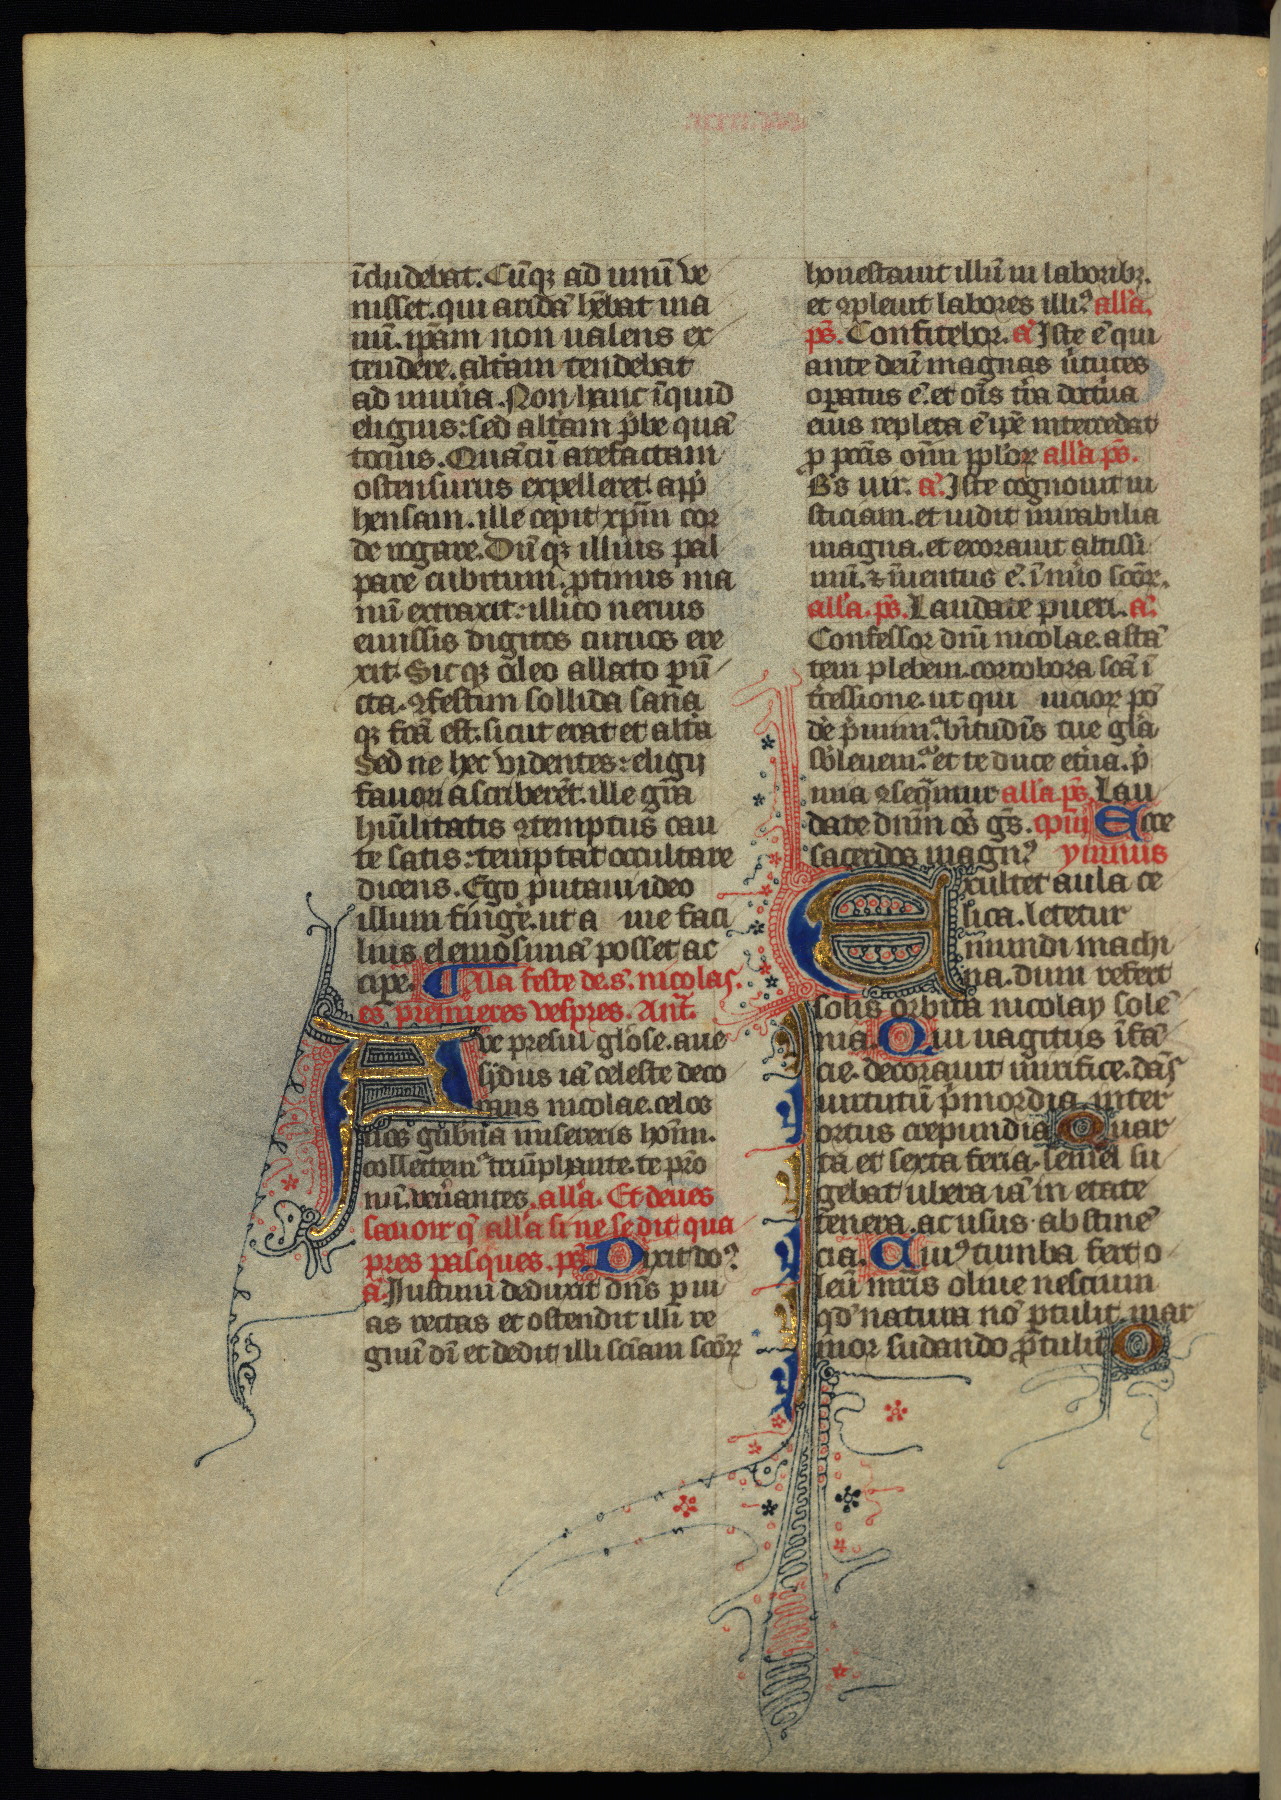 ĩcludebat. Cũqꝫ ad unũ ve
nisset. qui aridã hẽbat ma
nũ. ip̃am non ualens ex
tendere. alt̃am tendebat
ad mun̾a. Non hanc ĩquid
eligius: sed alt̃am p̃be quã
tocius. Quã cũ arefactam
ostensurus expelleret. app̃
hensam. ille cepit xp̃m cor
de rogare. Dũqꝫ illius pal
pare cubitum. ꝓtinus ma
nũ extraxit: illico neruis
emissis digitos curuos ere
xit. Sicqꝫ oleo allato ꝑũ
cta. ꝯfestim sollida sana
qꝫ fc̃a est. sicut erat et alt̾a
Sed ne hec videntes: eligij
fauori ascriberẽt. ille gr̃a
hũilitatis ꝯtemptus cau
te satis: temptat occultare
dicens. Ego putaui ideo
illum fing̾e. ut a me faci
lius elemosinã posset ac
cipe. A la feste de .s. nicolas.
es premieres vespres. Ant̃.
Ave presul gl̾ose. aue
sẏdus iã celeste deco
rans nicolae. celos
nos gub̾na misereris hoĩm.
collectemꝰ triũphante. te pr̃o
nũ ven̾antes. all̾a. Et deues
sauoir q̃ all̾a si ne se dit qua
pres pasques. ps̃. Dixit doꝰ
a. Iustum deduxit dñs ꝑ ui
as rectas et ostendit illi re
gnũ dĩ et dedit illi scĩam scõꝝ
honestauit illũ in laboribꝫ.
et ꝯpleuit labores illiꝰ all̾a.
ps̃. Confitebor. a. Iste ẽ qui
ante deũ magnas ũtutes
oꝑatus ẽ. et oĩs t̃ra doct̾na
eius repleta ẽ ip̃e intercedat
ꝓ pcc̃is oĩm pp̃loꝝ all̾a ps̃.
Bt̃s uir. a. Iste cognouit iu
sticiam. et uidit mirabilia
magna. et exorauit altissi
mũ. ⁊ ĩuentus ẽ. ĩ nũo scõꝝ.
all̾a. ps̃. Laudate pueri. a.
Confessor dñi nicolae. astã
tem plebem. corrobora scã ĩ
t̃cessione. ut qui uicioꝝ põ
d̾e p̃mimꝰ. b̾titudĩs tue glã
sb̾leuemꝰ. et te duce et̾na. p̃
mia ꝯseq̃mur all̾a. ps̃. Lau
date dñm oẽs gẽs. cpit̾l Ecce
sacerdos magnꝰ ymnus
Exultet aula ce
lica. letetur
mundi machi
na. dum refert
solis orbita nicolay solẽ
nia. Qui uagitus ĩfã
cie. decorauit mirifice. dãs
uirtutũ p̃mordia inter
ortus crepundia Quar
ta et sexta feria. semel su
gebat ubera iã in etate
tenera. ac usus abstinẽ
cia. Cuiꝰ tumba fert o
leũ mr̃is oliue nescium
qđ natura nõ ꝑtulit. mar
mor sudando ꝓtulit O